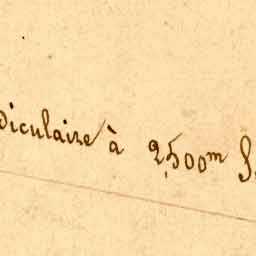 diculaire à 2,500m